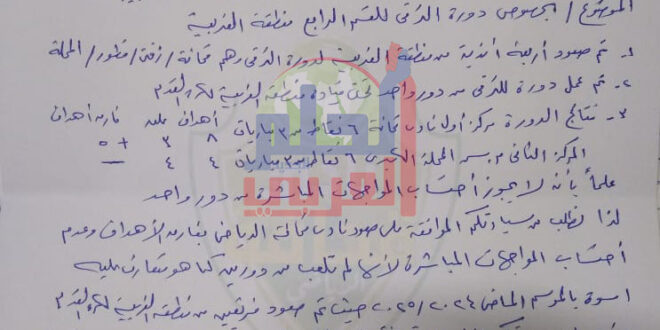 الموضوع / بخصوص دورة الترقى للقسم الرابع منطقة الغربية
١ـ تم صعود أربعة أندية من منطقة الغربية لدورة الترقى وهم قحافة / زفتى / قطور / المحلة
٢ـ تم عمل دورة للترقى من دور واحد تحت قيادة منطقة الغربية لكرة القدم
٣ـ نتائج الدورة مركز أول نادى قحافة ٦ نقاط من ٣ مباريات أهداف عليه فارق أهداف
٨ ٣ +٥
المركز الثانى المحلة الكبرى ٦ نقاط من ٣ مباريات ٤ ٤ —
علماً بأن لا يجوز أحتساب المواجهات المباشرة من دور واحد
لذا نطلب من سيادتكم الموافقة على صعود نادى قحافة الرياضى بفارق الأهداف وعدم
أحتساب المواجهات المباشرة لأنها لم تلعب من دورين كما هو متعارف عليه
اسوة بالموسم الماضى ٢٠٢٤ / ٢٠٢٥ حيث تم صعود فريقين من منطقة الغربية لكرة القدم
أحلام العربى